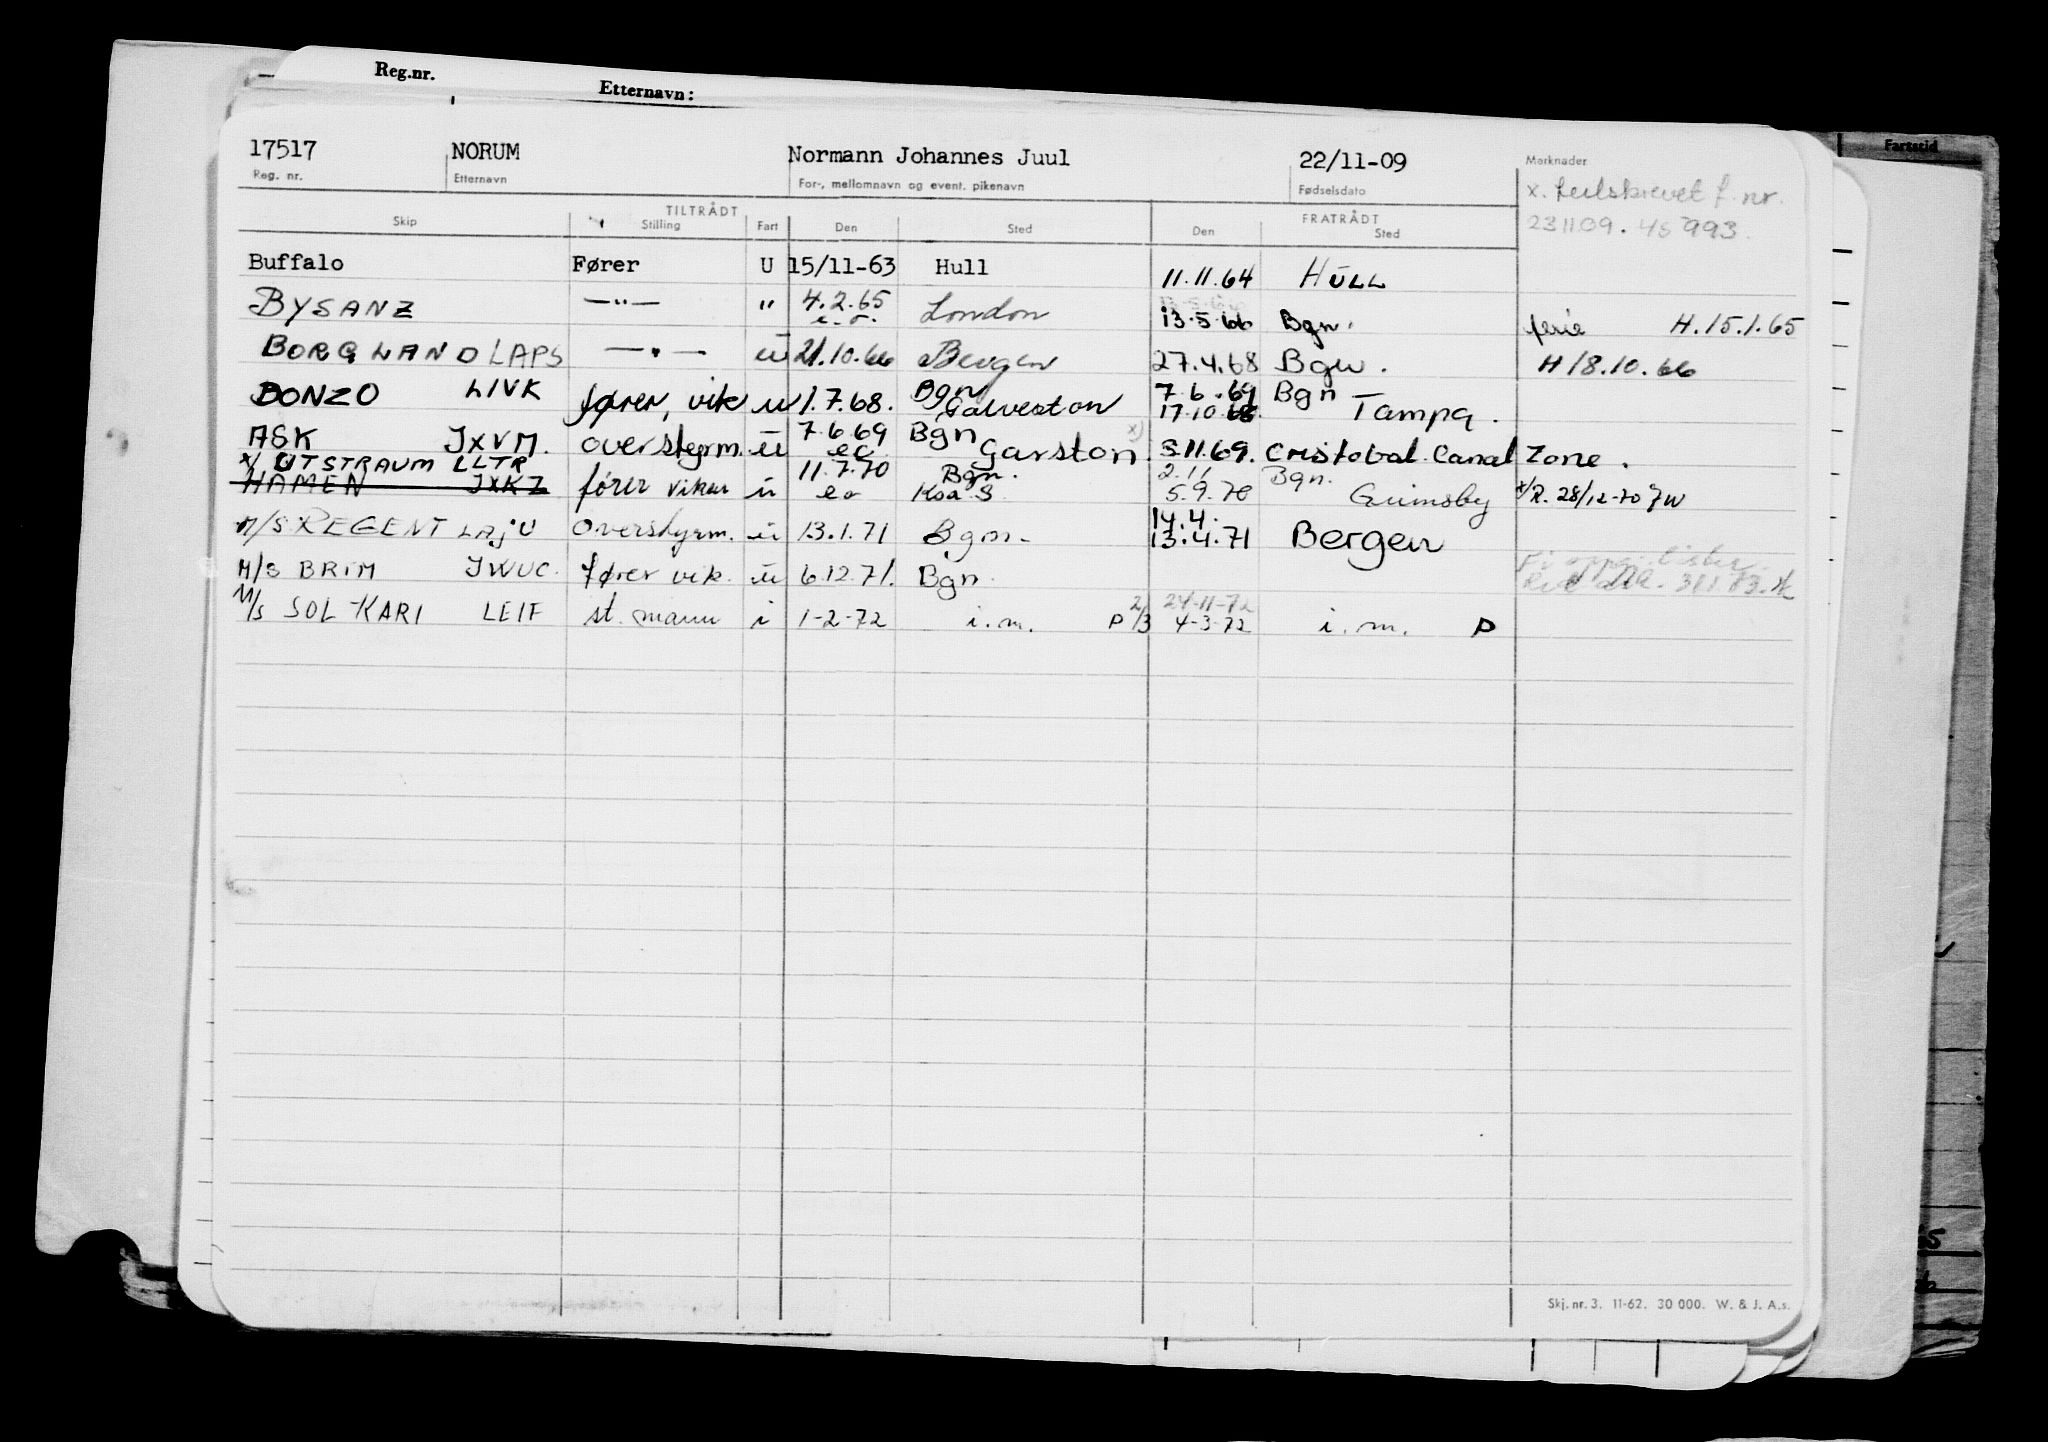 Reg.nr.
Etternavn:
Fartstid
17517 NORUM Normann Johannes Juul 22/11-09 Merknader
Reg. nr. Etternavn For-, mellomnavn og event. pikenavn Fødselsdato
x. f. nr.
231109. 45993.
TILTRÅDT FRATRÅDT
Skip Stilling Fart Den Sted Den Sted
Buffalo Fører U 15/11-63 Hull 11.11.64 HULL
BYSANZ —"— " 4.2.65 London 13.5.66 Bgn. ferie H.15.1.65
BORGLAND LAPS —"— ū 21.10.66 Bergen 27.4.68 Bgn. H 18.10.66
BONZO LIVK fører, vik u 1.7.68. Bgn Galveston 7.6.69 Bgn
17.10.68. Tampa.
ASK JXVM. overstyrm. ū 7.6.69 Bgn Garston x) 3.11.69. Cristobal Canal Zone.
x/ UTSTRAUM LLTR 11.7.70 Bgn. 2.11 Bgn.
HAMEN JXKZ fører vikar ū 5.9.70 Grimsby x/R. 28/12-70 JW
M/S REGENT LAJU overstyrm. ū 13.1.71 Bgn. 14.4.
13.4.71 Bergen
M/S BRIM JWUC. fører vik. ū 6.12.71. Bgn.
M/S SOL KARI LEIF st. mann i 1-2-72 i.m. P 2/3 24-11-72
4-3-72 i.m. P
Skj. nr. 3. 11-62. 30 000. W. & J. A.s.